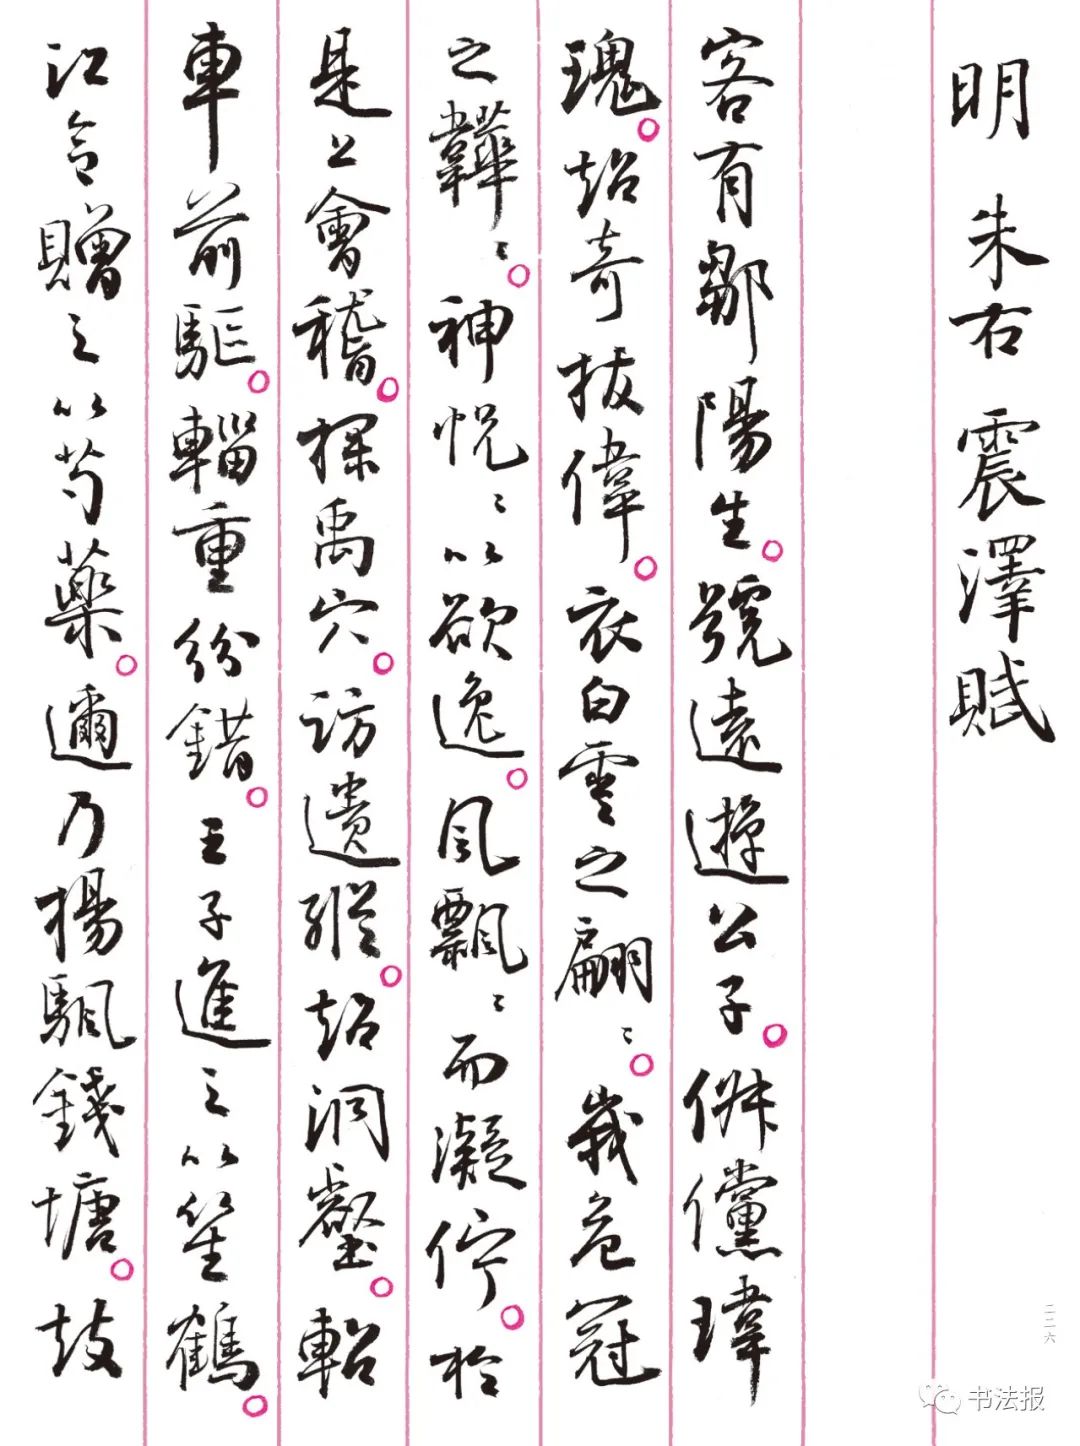 明 朱右 震澤賦
客有鄒陽生。號遠遊公子。俶儻瑋
瑰。超奇拔偉。衣白雲之翩〻。峩危冠
之韡〻。神怳〻以欲逸。風飄〻而凝佇。於
是上會稽。探禹穴。訪遺蹤。超洞壑。軺
車前驅。輜重紛錯。王子進之以笙鶴。
江令贈之以芍藥。邇乃揚颿錢塘。鼓
二二六
书法报